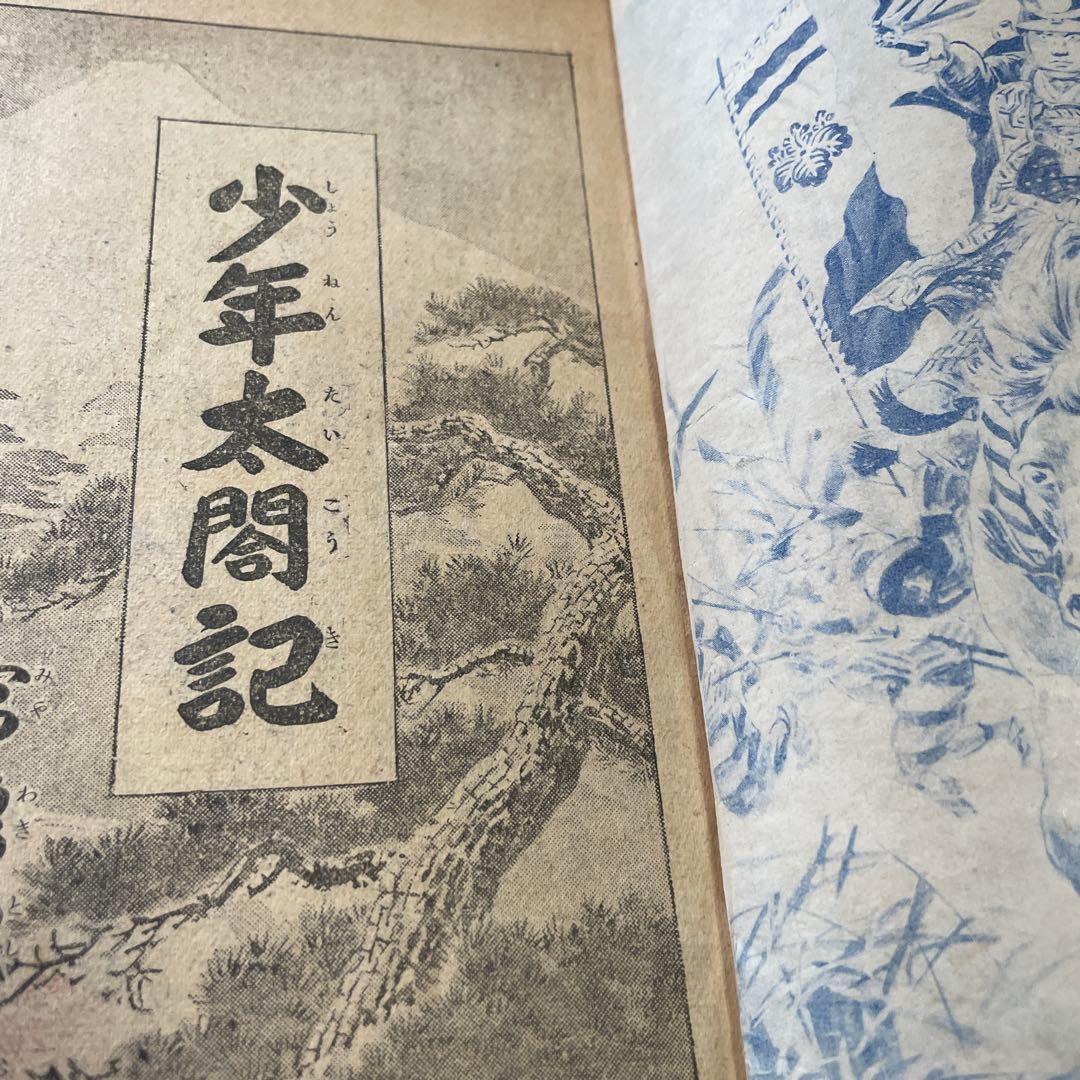 少年太閤記
しょうねんたいこうき
みや
わき
と